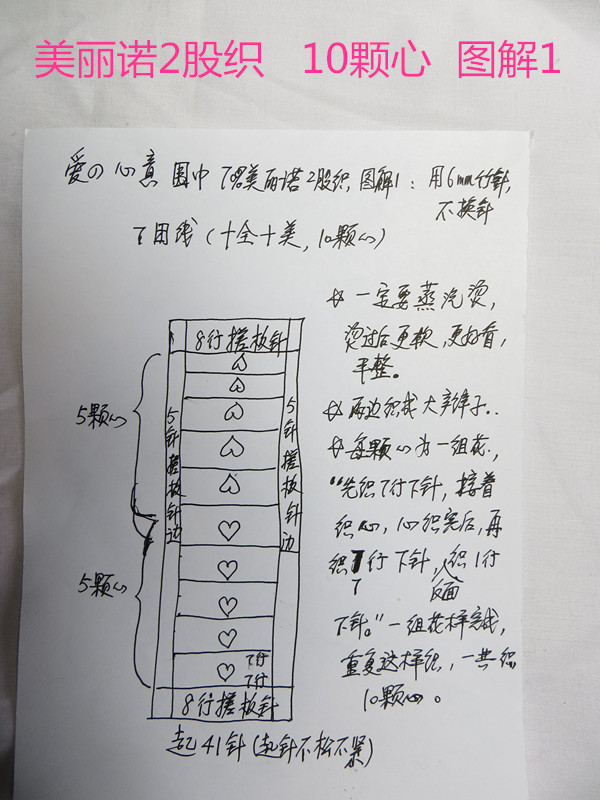 美丽诺2股织 10颗心 图解1
爱の心意 围巾 7团美丽诺2股织,图解1:用6mm竹针,
不换针
7团线(十全十美,10颗心)
☆ 一定要蒸汽烫,
烫过后更软,更好看,
平整。
☆ 两边织成大辫子..
☆ 每颗心为一组花,
“先织7行下针,接着
织心,心织完后,再
织7行下针,织1行
7 反面
下针。”一组花样完成,
重复这样织,一共织
10颗心。
8行搓板针
5颗心
5针搓板针边
5针搓板针边
5颗心
7行
7行
8行搓板针
起41针(起针不松不紧)